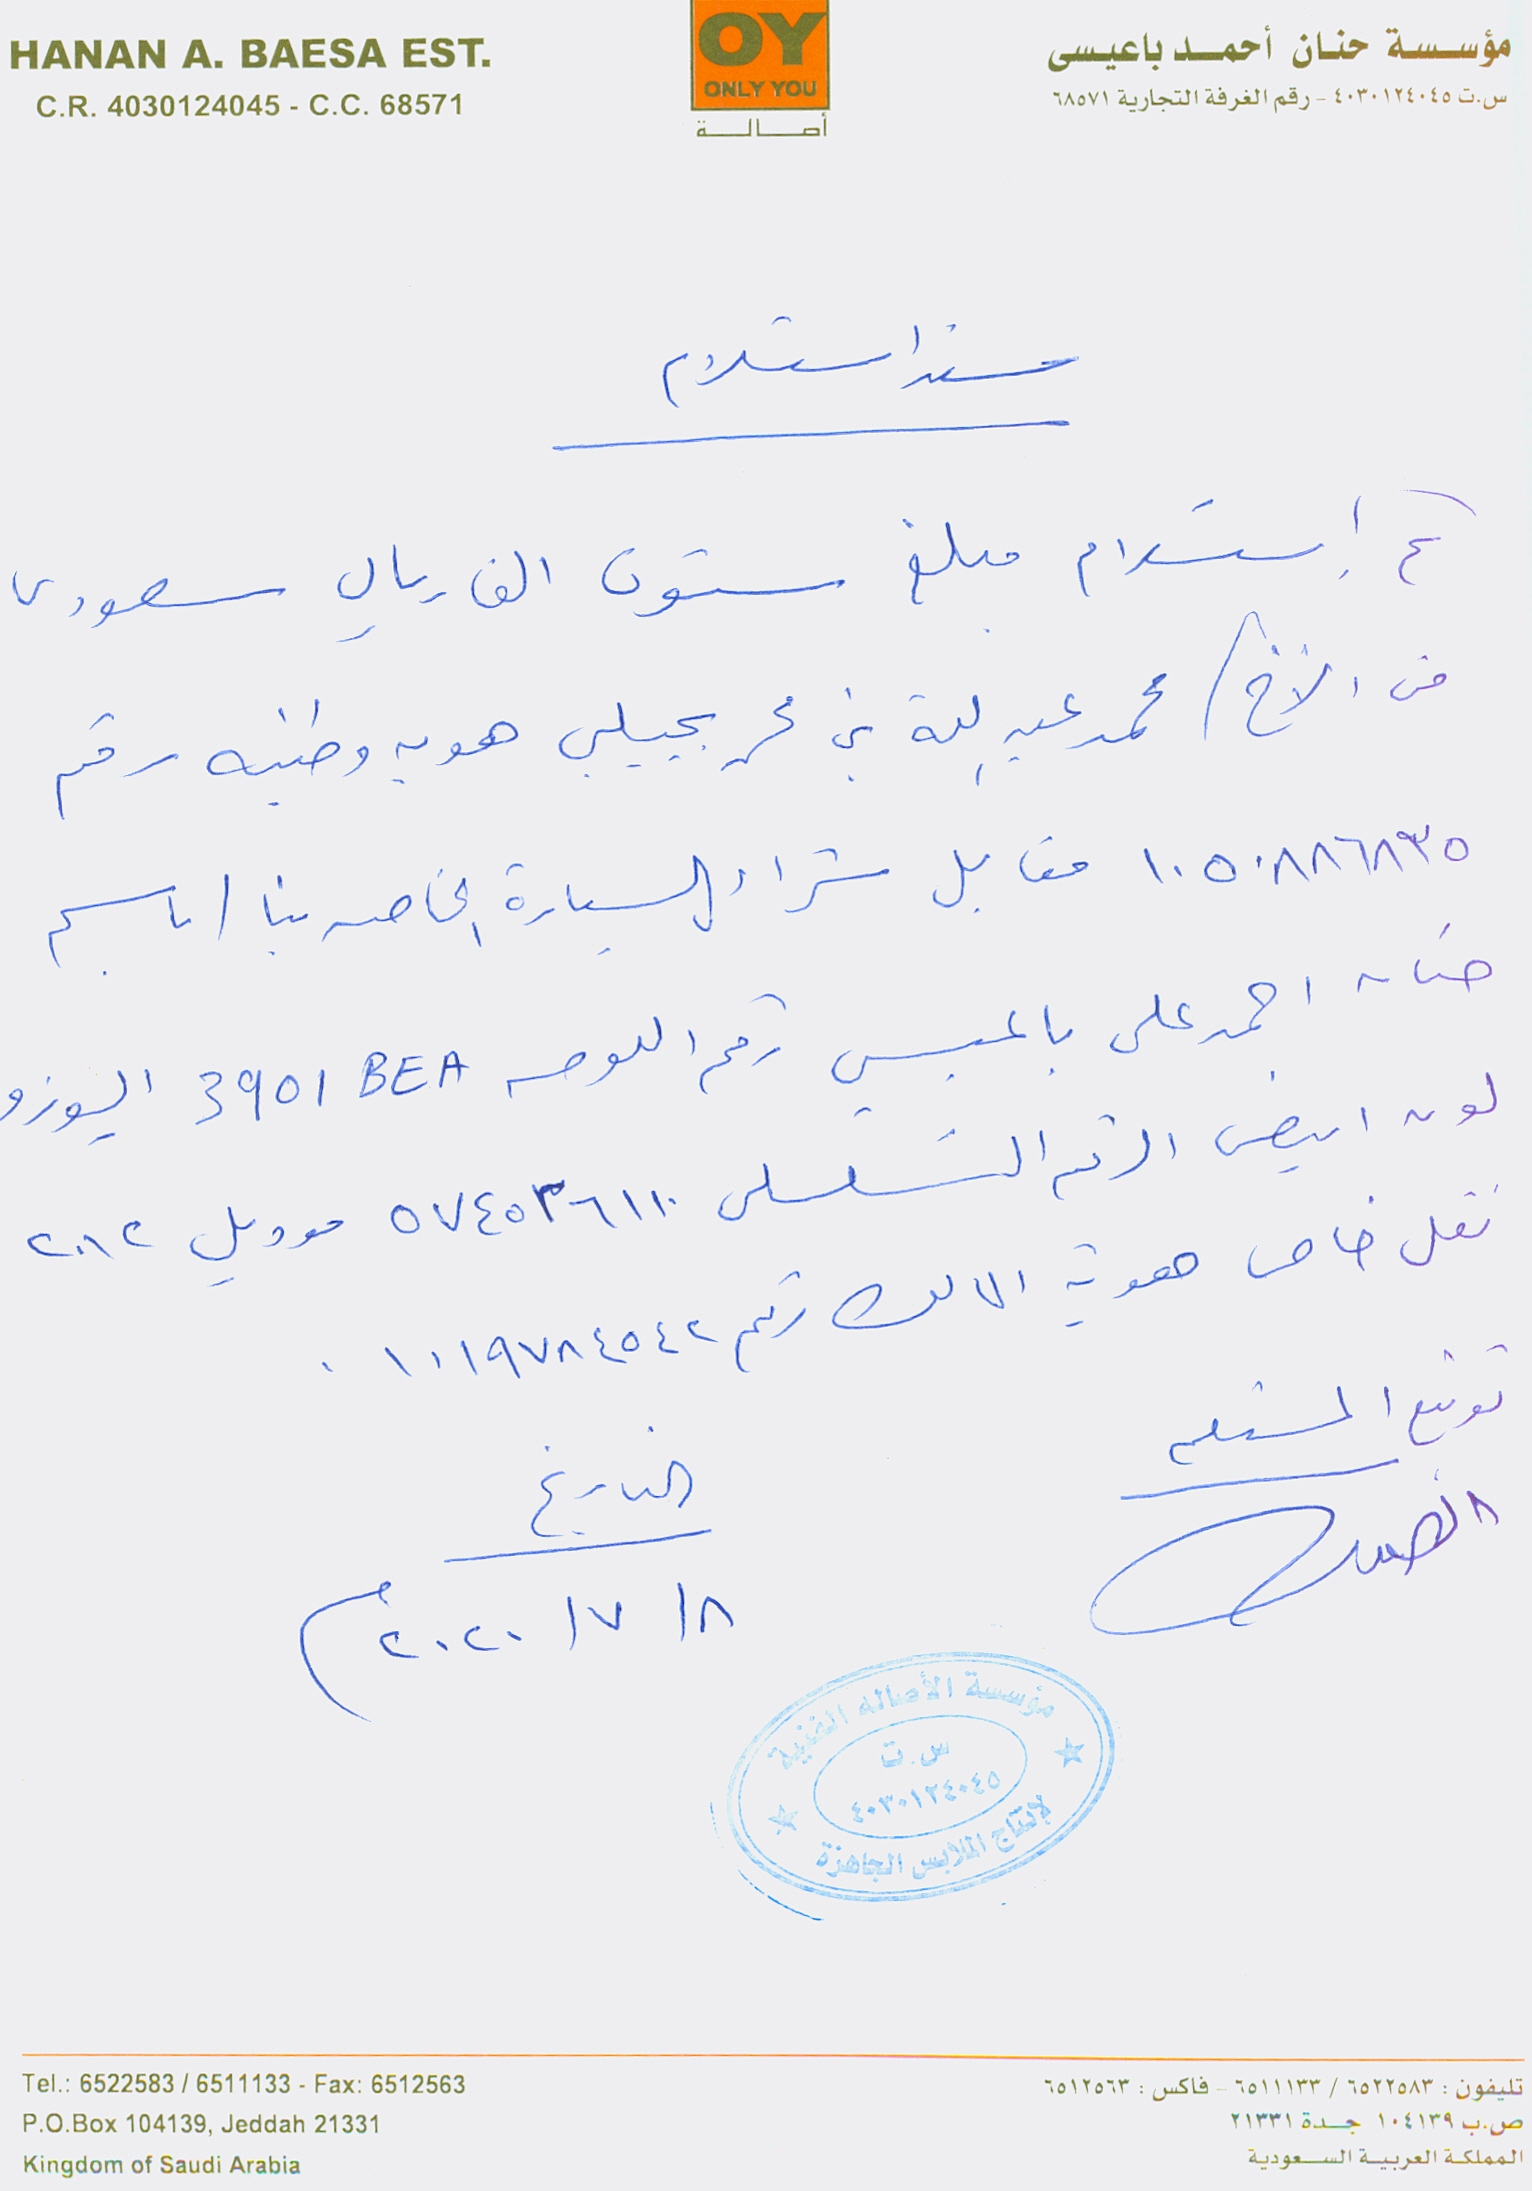 HANAN A. BAESA EST.
C.R. 4030124045 - C.C. 68571
OY
ONLY YOU
أصالة
مؤسسة حنان أحمد باعيسى
س.ت ٤٠٣٠١٢٤٠٤٥ - رقم الغرفة التجارية ٦٨٥٧١
سند استلام
تم إستلام مبلغ ستون الف ريال سعودى
من الأخ / محمد عبد الله بن محمد هويه وطنيه رقم
١٠٥٠٨٨٦٨٣٥ مقابل شراء السيارة الخاصه بنا / باسم
حنان احمد على باعيسى رقم اللوحه 3901 BEA ايسوزو
لون ابيض الرقم التسلسلى ٥٧٤٥٣٦١١٠ موديل ٢٠١٢
نقل خاص هوية المالك رقم ١٠١٩٧٨٤٥٤٢ .
توقيع المستلم
التاريخ
٨ / ٧ / ٢٠٢٠ م
مؤسسة الأصاله الفنية
س.ت
٤٠٣٠١٢٤٠٤٥
لإنتاج الملابس الجاهزة
Tel.: 6522583 / 6511133 - Fax: 6512563
P.O.Box 104139, Jeddah 21331
Kingdom of Saudi Arabia
تليفون : ٦٥٢٢٥٨٣ / ٦٥١١١٣٣ - فاكس : ٦٥١٢٥٦٣
ص.ب ١٠٤١٣٩ جدة ٢١٣٣١
المملكة العربية السعودية